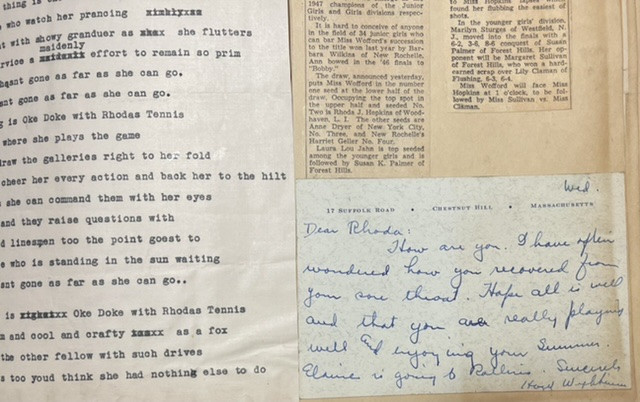 who watch her prancing
with showy granduer as she flutters
maidenly
rvice a effort to remain so prim
hasnt gone as far as she can go.
snt gone as far as she can go.
g is Oke Doke with Rhodas Tennis
where she plays the game
draw the galleries right to her fold
cheer her every action and back her to the hilt
she can command them with her eyes
and they raise questions with
d linesmen too the point goest to
e who is standing in the sun waiting
snt gone as far as she can go..
is Oke Doke with Rhodas Tennis
m and cool and crafty as a fox
the other fellow with such drives
s too youd think she had nothing else to do
1947 champions of the Junior
Girls and Girls divisions respec-
tively.
It is hard to conceive of anyone
in the field of 34 junior girls who
can bar Miss Wofford's succession
to the title won last year by Bar-
bara Wilkins of New Rochelle.
Ann bowed in the '46 finals to
"Bobby."
The draw, announced yesterday,
puts Miss Wofford in the number
one seed at the lower half of the
draw. Occupying the top spot in
the upper half and seeded No.
Two is Rhoda J. Hopkins of Wood-
haven, L. I. The other seeds are
Anne Dryer of New York City,
No. Three, and New Rochelle's
Harriet Geller No. Four.
Laura Lou Jahn is top seeded
among the younger girls and is
followed by Susan K. Palmer of
Forest Hills.
found her flubbing the easiest of
shots.
In the younger girls' division,
Marilyn Sturges of Westfield, N.
J., moved into the finals with a
6-2, 3-6, 8-6 conquest of Susan
Palmer of Forest Hills. Her op-
ponent will be Margaret Sullivan
of Forest Hills, who won a hard-
earned scrap over Lily Claman of
Flushing, 6-3, 6-4.
Miss Wofford will face Miss
Hopkins at 1 o'clock, to be fol-
lowed by Miss Sullivan vs. Miss
Claman.
Wed.
17 SUFFOLK ROAD • CHESTNUT HILL • MASSACHUSETTS
Dear Rhoda:
How are you. I have often
wondered how you recovered from
your sore throat. Hope all is well
and that you are really playing
well and enjoying your Summer.
Elaine is going to Rollins. Sincerely